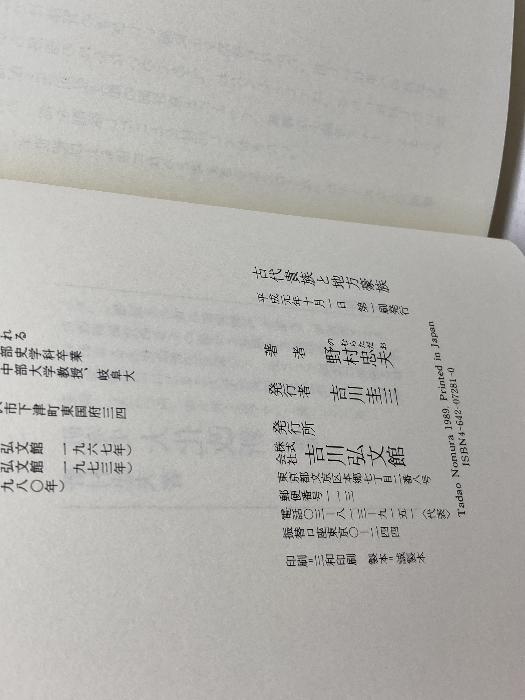 れる
部史学科卒業
中部大学教授、岐阜大
市下津町東国府三四
弘文館 一九六七年）
弘文館 一九七三年）
九八〇年）
古代貴族と地方豪族
平成元年十月一日 第一刷発行
著者 野村忠夫
のむらただお
発行者 吉川圭三
発行所 株式会社 吉川弘文館
東京都文京区本郷七丁目二番八号
郵便番号一一三
電話〇三―八一三―九一五一〈代表〉
振替口座東京〇―二四四
印刷＝三和印刷 製本＝誠製本
Tadao Nomura 1989. Printed in Japan
ISBN4-642-07281-0